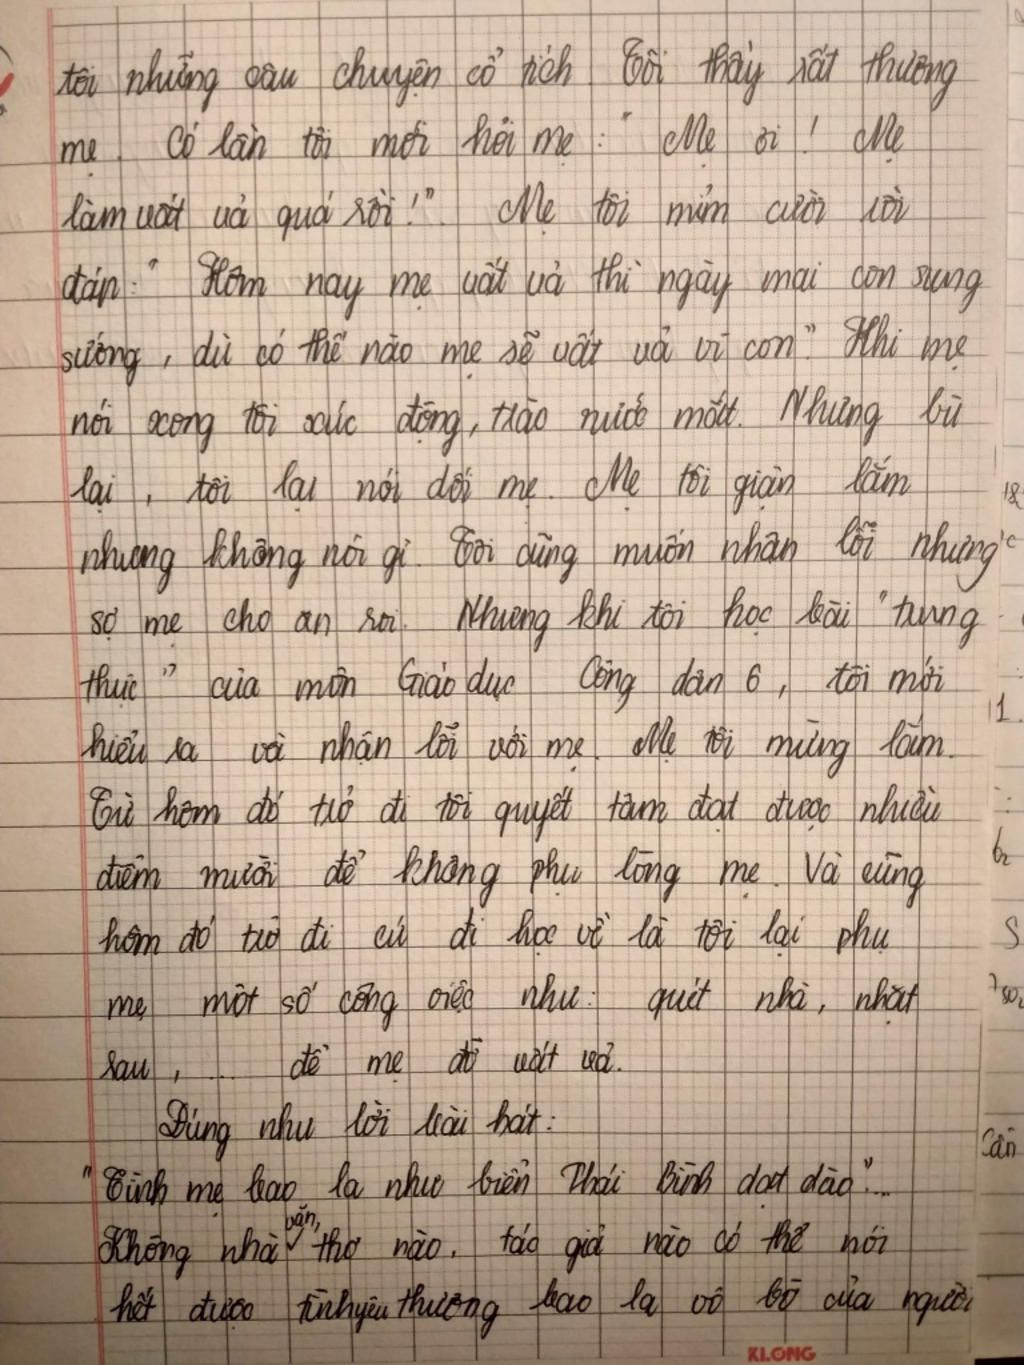 tôi những câu chuyện cổ tích Tôi thấy rất thương
mẹ. Có lần tôi mới hỏi mẹ: " Mẹ ơi ! Mẹ
làm vất vả quá rồi!". Mẹ tôi mỉm cười rồi
đáp: " Hôm nay mẹ vất vả thì ngày mai con sung
sướng, dù có thế nào mẹ sẽ vất vả vì con". Khi mẹ
nói xong tôi xúc động, trào nước mắt. Nhưng bù
lại, tôi lại nói dối mẹ. Mẹ tôi giận lắm
nhưng không nói gì. Tôi cũng muốn nhận lỗi nhưng
sợ mẹ cho ăn roi. Nhưng khi tôi học bài "trung
thực" của môn Giáo dục Công dân 6, tôi mới
hiểu ra và nhận lỗi với mẹ. Mẹ tôi mừng lắm.
Từ hôm đó trở đi tôi quyết tâm đạt được nhiều
điểm mười để không phụ lòng mẹ. Và cũng
hôm đó trở đi cứ đi học về là tôi lại phụ
mẹ một số công việc như: quét nhà, nhặt
rau, ... để mẹ đỡ vất vả.
Đúng như lời bài hát:
"Tình mẹ bao la như biển Thái Bình dạt dào"...
Không nhà văn, thơ nào, tác giả nào có thể nói
hết được tình yêu thương bao la vô bờ của người
KLONG